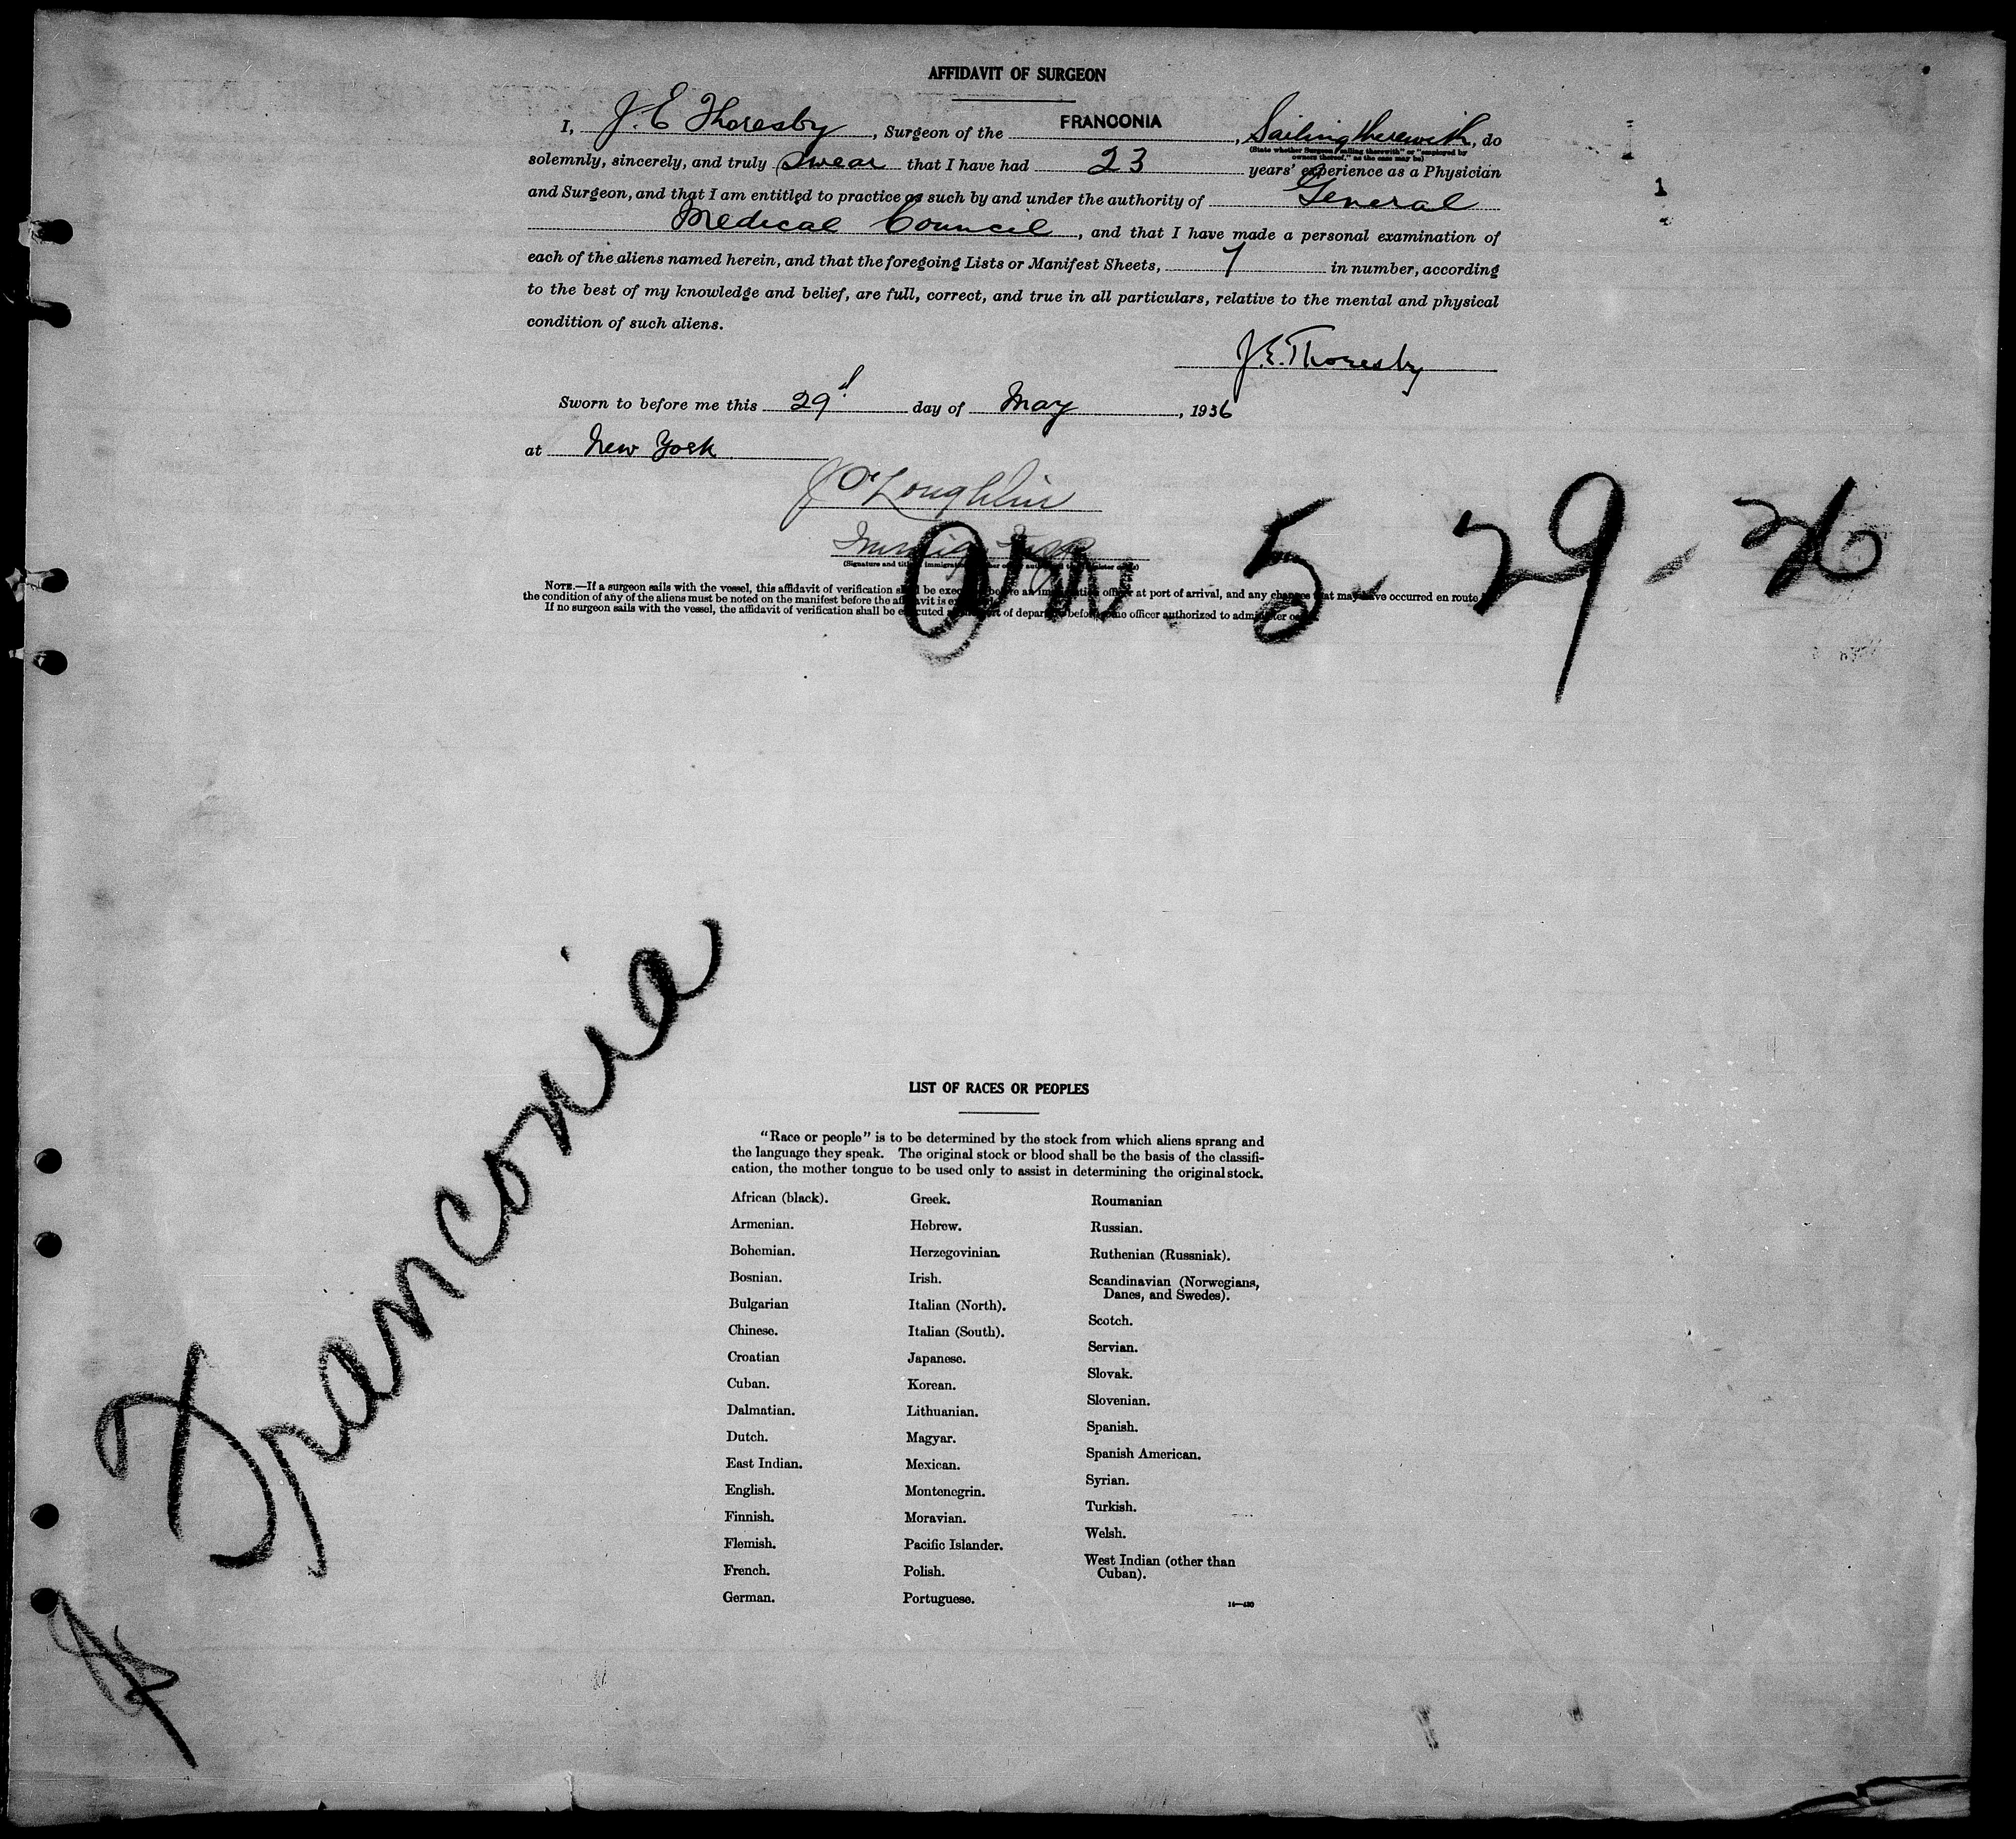 AFFIDAVIT OF SURGEON
I, J. E Thoresby, Surgeon of the FRANCONIA, Sailing therewith, do
(State whether Surgeon "sailing therewith" or "employed by
owners thereof," as the case may be)
solemnly, sincerely, and truly swear that I have had 23 years' experience as a Physician
and Surgeon, and that I am entitled to practice as such by and under the authority of General
Medical Council, and that I have made a personal examination of
each of the aliens named herein, and that the foregoing Lists or Manifest Sheets, 7 in number, according
to the best of my knowledge and belief, are full, correct, and true in all particulars, relative to the mental and physical
condition of such aliens.
J. E. Thoresby
Sworn to before me this 29 day of May, 1936
at New York
J O'Loughlin
(Signature and title immigration
NOTE.—If a surgeon sails with the vessel, this affidavit of verification shall be executed before an immigration officer at port of arrival, and any changes that may have occurred en route
the condition of any of the aliens must be noted on the manifest before the affidavit is
If no surgeon sails with the vessel, the affidavit of verification shall be executed at port of departure before some officer authorized to administer
5-29-36
1
Franconia
LIST OF RACES OR PEOPLES
"Race or people" is to be determined by the stock from which aliens sprang and
the language they speak. The original stock or blood shall be the basis of the classifi-
cation, the mother tongue to be used only to assist in determining the original stock.
African (black).
Armenian.
Bohemian.
Bosnian.
Bulgarian
Chinese.
Croatian
Cuban.
Dalmatian.
Dutch.
East Indian.
English.
Finnish.
Flemish.
French.
German.
Greek.
Hebrew.
Herzegovinian.
Irish.
Italian (North).
Italian (South).
Japanese.
Korean.
Lithuanian.
Magyar.
Mexican.
Montenegrin.
Moravian.
Pacific Islander.
Polish.
Portuguese.
Roumanian
Russian.
Ruthenian (Russniak).
Scandinavian (Norwegians,
Danes, and Swedes).
Scotch.
Servian.
Slovak.
Slovenian.
Spanish.
Spanish American.
Syrian.
Turkish.
Welsh.
West Indian (other than
Cuban).